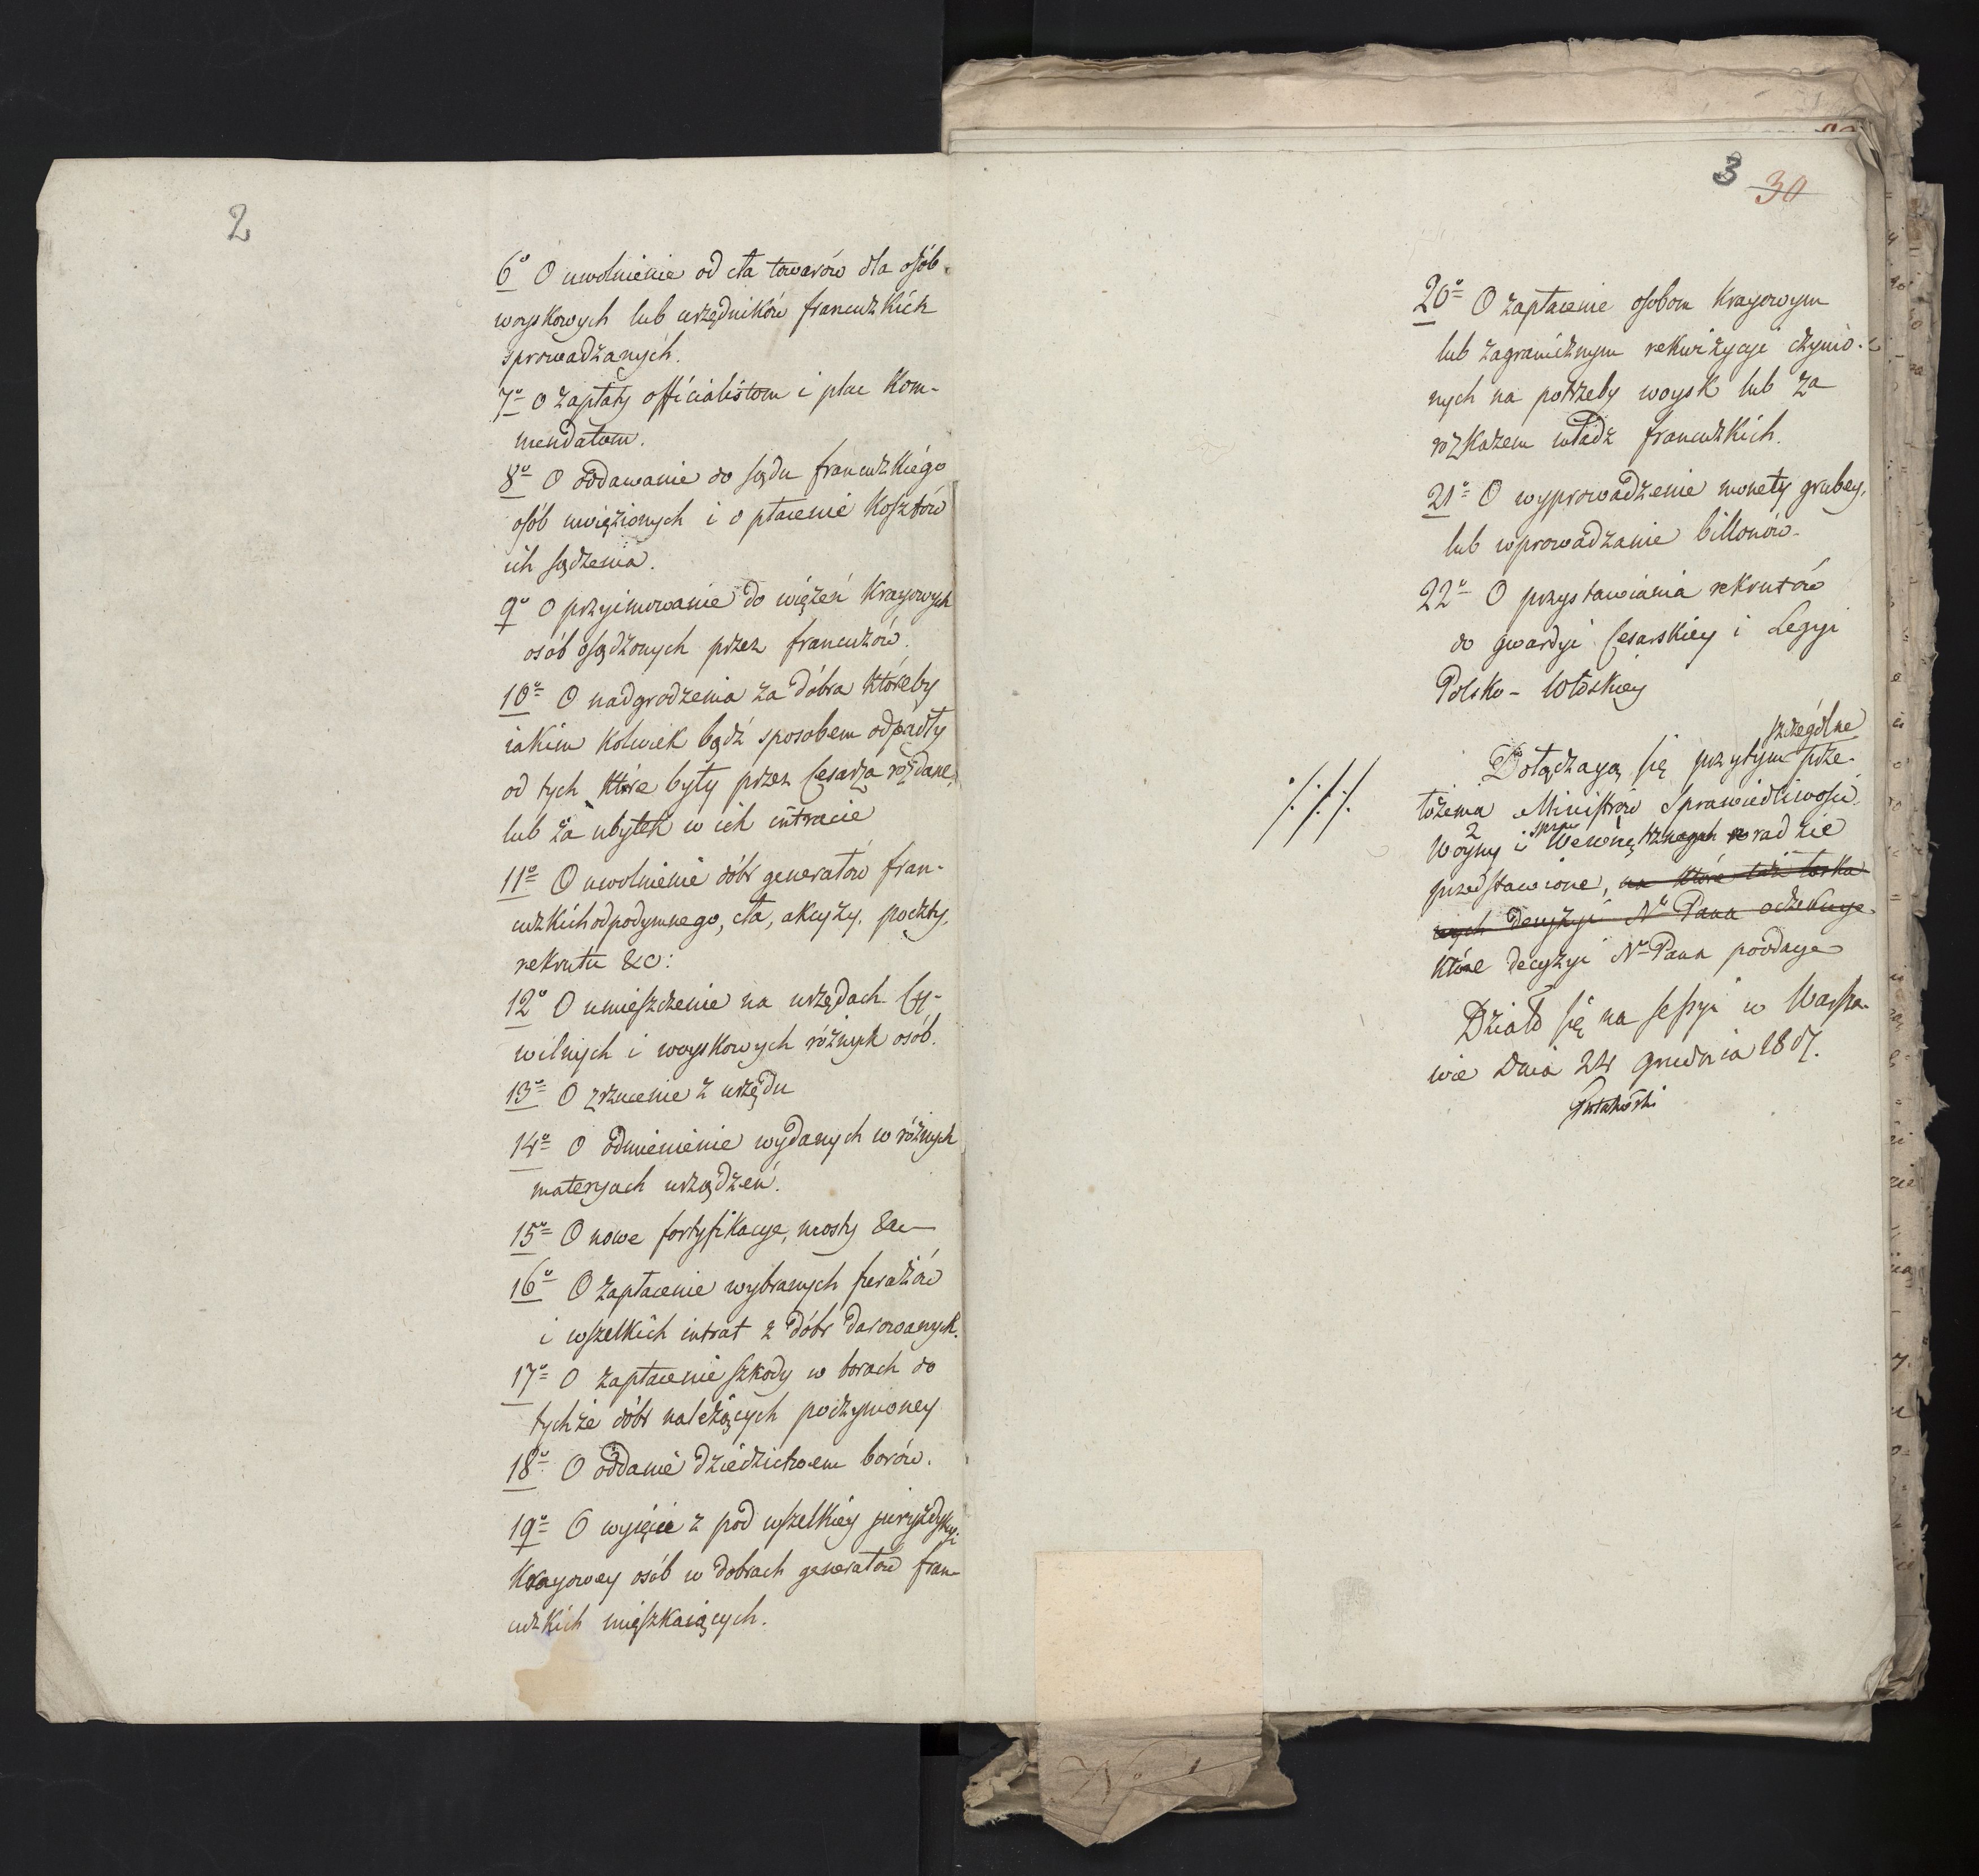 2
6º O uwolnienie od cła towarów dla osób
woyskowych lub urzędników francuzkich
sprowadzanych.
7º O zapłaty officialistom i płac Kom-
mendatom.
8º O oddawanie do sądu francuzkiego
osób uwięzionych i o płacenie kosztów
ich sądzenia.
9º O przyimowanie do więzeń Kraiowych
osób osądzonych przez francuzów.
10º O nadgrodzenia za dobra któreby
iakim kolwiek bądź sposobem odpadły
od tych które były przez Cesarza rozdane,
lub za ubytek w ich intracie
11º O uwolnienie dóbr generałów fran-
cuzkich od podymnego, cła, akcyzy, poczty,
rekruta &c:
12º O umieszczenie na urzędach Cy-
wilnych i woyskowych różnych osób.
13º O zrzucenie z urzędu
14º O odmienienie wydanych w różnych
materyach urządzeń.
15º O nowe fortyfikacye, mosty &c
16º O zapłacenie wybranych furażów
i wszelkich intrat z dóbr darowanych.
17º O zapłacenie szkody w borach do
tychże dóbr należących poczynioney
18º O oddanie dziedzictwem borów.
19º O wyięcie z pod wszelkiey juryzdykcyi
Kraiowey osób w dobrach generałów fran-
cuzkich mięszkaiących.
3 30
20º O zapłacenie osobom Kraiowym
lub zagranicznym rekwizycyi czynio-
nych na potrzeby woysk lub za
rozkazem władz francuzkich.
21º O wyprowadzenie monety grubey,
lub wprowadzanie billonów.
22º O przystawiania rekrutów
do gwardyi Cesarskiey i Legyi
Polsko-Włoskiey
szczególne
Dołączaią się przytym prze-
łożenia Ministrów Sprawiedliwości,
Woyny i spraw Wewnętrznych w radzie
przedstawione, na które też łaska-
wych decyzyi Nº Pana oczekuye.
które decyzyi Nº Pana poddaye
Działo się na sessyi w Warsza-
wie dnia 24 grudnia 1807.